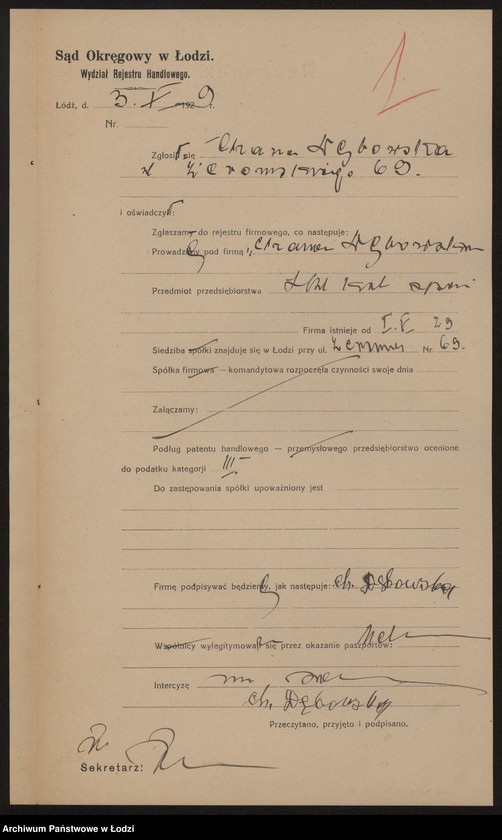 1
Sąd Okręgowy w Łodzi.
Wydział Rejestru Handlowego.
Łódź, d. 3. V 1929 r.
Nr.
Zgłosił się Chana Dębowska
Żeromskiego 69.
i oświadczył:
Zgłaszamy do rejestru firmowego, co następuje:
Prowadzimy pod firmą „Chana Dębowska
Przedmiot przedsiębiorstwa
Firma istnieje od I. V 29
Siedziba spółki znajduje się w Łodzi przy ul. Nr. 69.
Spółka firmowa — komandytowa rozpoczęła czynności swoje dnia
Załączamy:
Podług patentu handlowego — przemysłowego przedsiębiorstwo ocenione
do podatku kategorji III
Do zastępowania spółki upoważniony jest
Firmę podpisywać będziemy, jak następuje: Ch. Dębowska
Wspólnicy wylegitymowali się przez okazanie paszportów:
Intercyzę
Ch. Dębowska
Przeczytano, przyjęto i podpisano.
Sekretarz:
Archiwum Państwowe w Łodzi